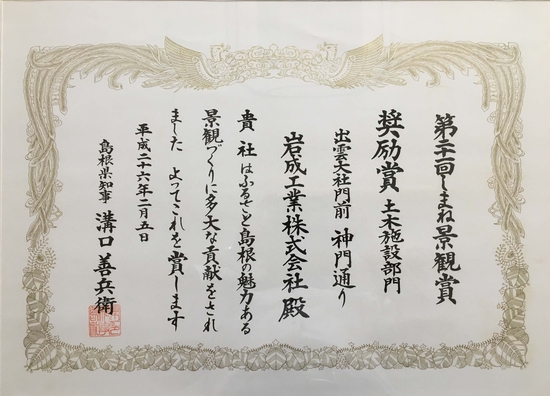 第二十一回しまね景観賞
奨励賞 土木施設部門
出雲大社門前 神門通り
岩成工業株式会社 殿
貴社はふるさと島根の魅力ある
景観づくりに多大な貢献をされ
ました よってこれを賞します
平成二十六年二月五日
島根県知事 溝口善兵衛